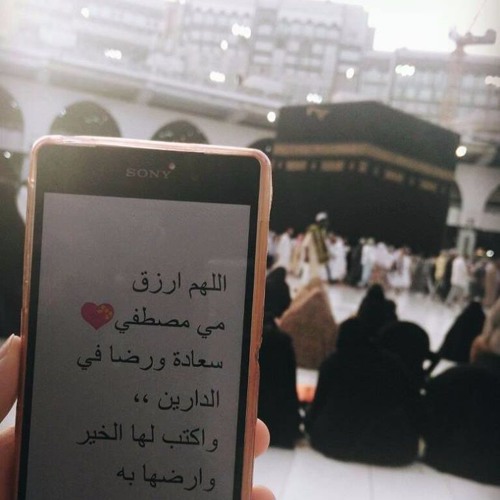 SONY
اللهم ارزق
مي مصطفي💖
سعادة ورضا في
الدارين ،،
واكتب لها الخير
وارضها به